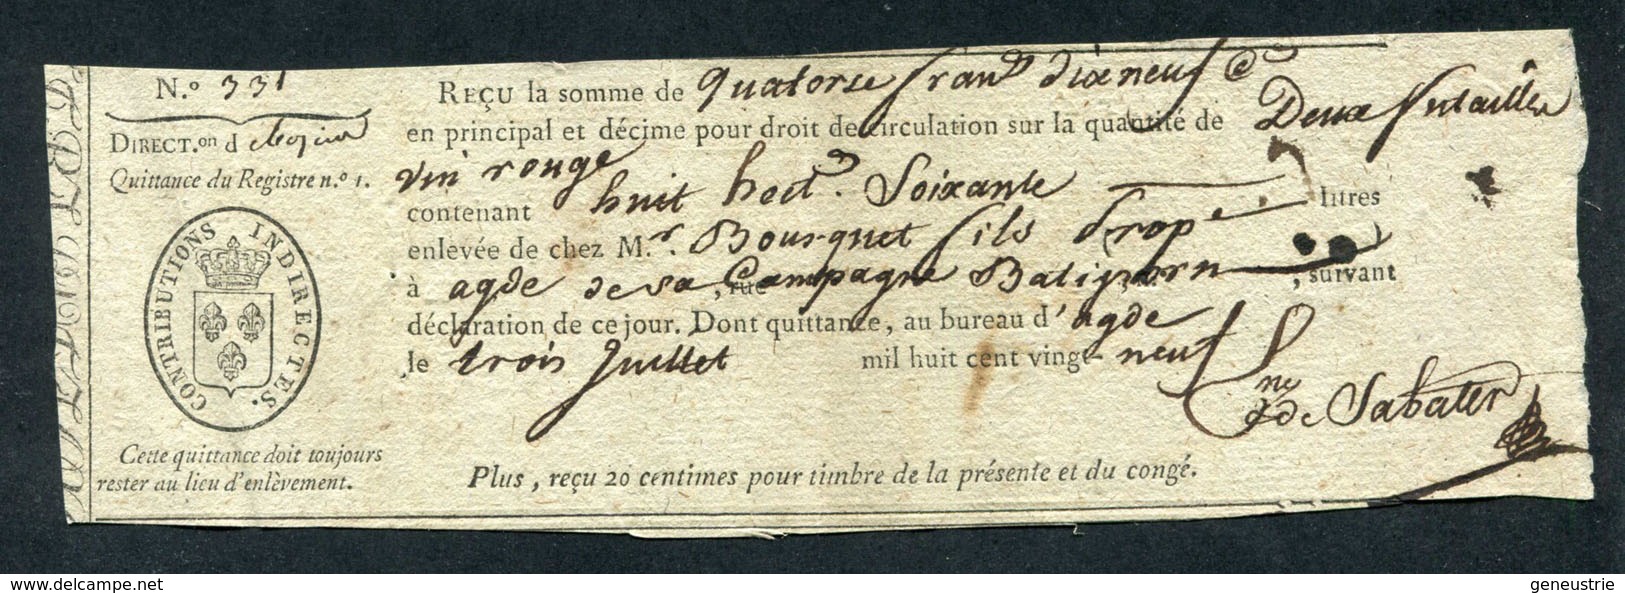 N.º 331
DIRECT.on d
Quittance du Registre n.º 1.
CONTRIBUTIONS INDIRECTES.
Cette quittance doit toujours
rester au lieu d'enlèvement.
REÇU la somme de quatorse francs dixneuf Ces
en principal et décime pour droit de circulation sur la quantité de Deux futailles
vin rouge
contenant huit hect. Soixante litres
enlevée de chez M.r Bousquet fils prop.e
à agde de sa, rue Campagne , suivant
déclaration de ce jour. Dont quittance, au bureau d'agde
le trois Juillet mil huit cent vingt-neuf
de Sabater
Plus, reçu 20 centimes pour timbre de la présente et du congé.
www.delcampe.net
geneustrie